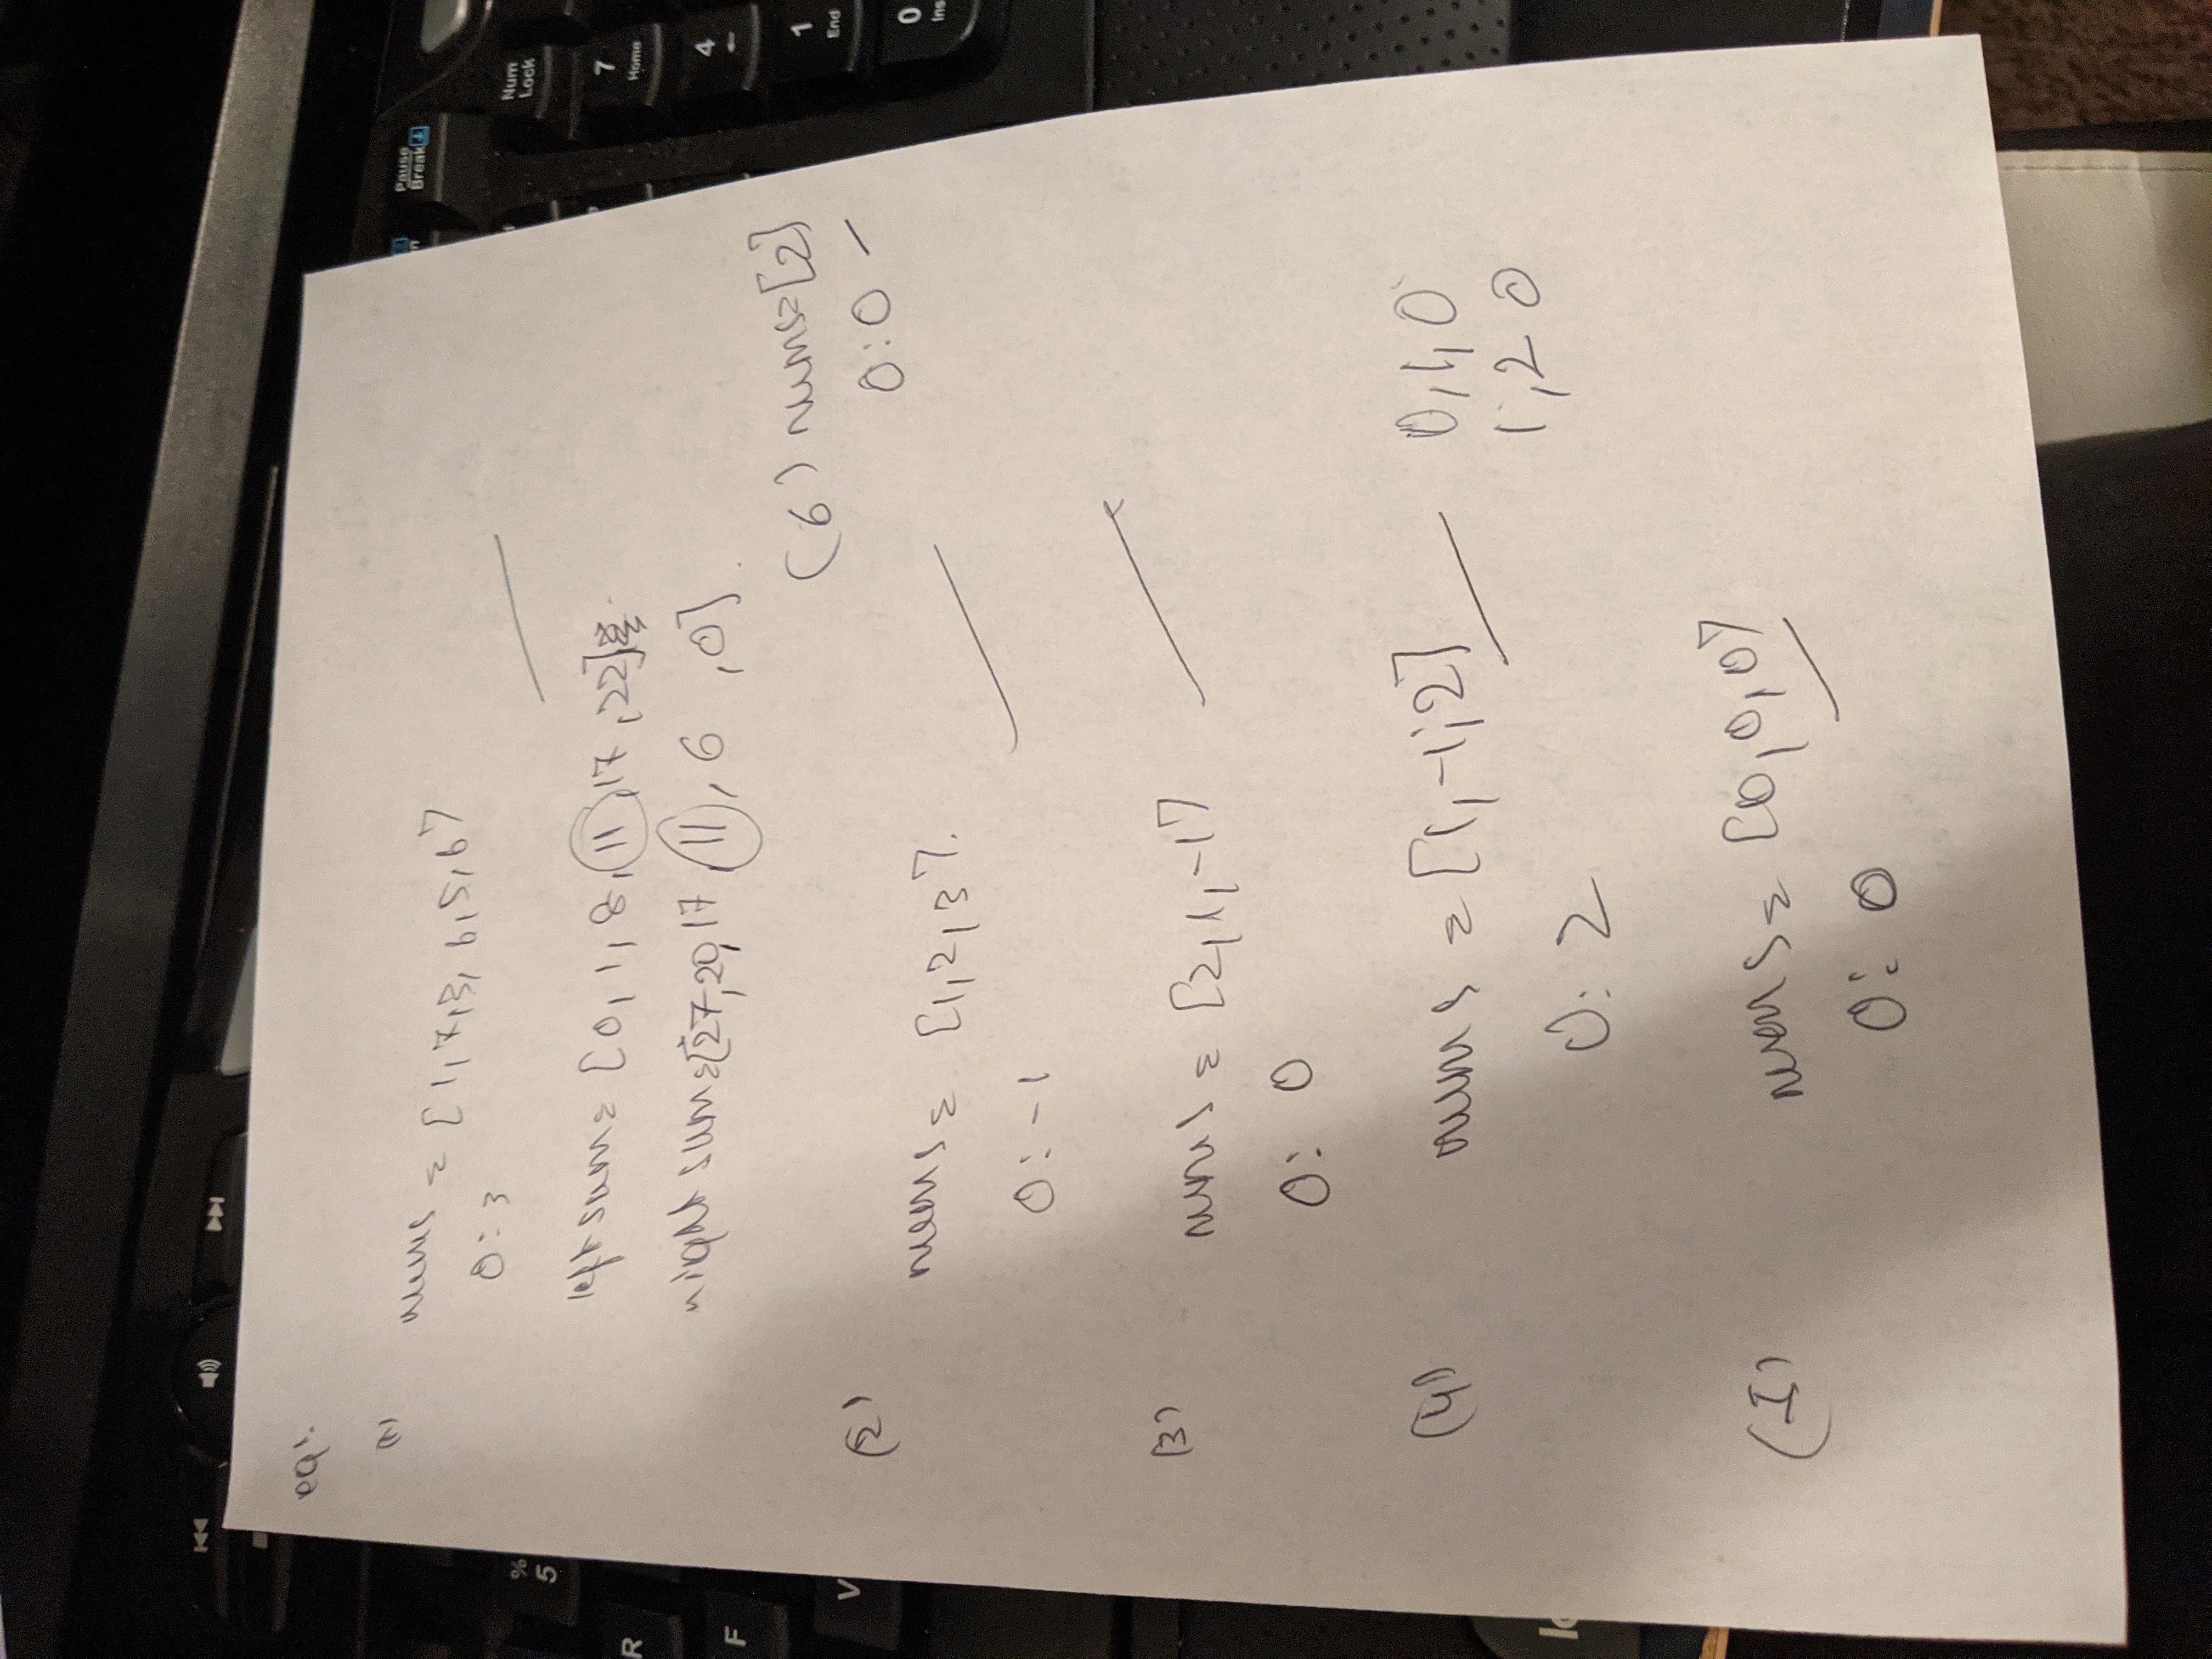 eg:
(1)
nums = [1,7,3,6,5,6]
O: 3
left sum = [0, 1, 8, 11, 17, 22]
right sum = [27, 20, 17 11, 6 , 0]
(6) nums=[2]
O: 0
(2)
nums = [1,2,3].
O: -1
(3)
nums = [2,1,-1]
O: 0
(4)
nums = [1,-1,2]
0,1,0
1,2 0
O: 2
(5)
nums = [0,0,0]
O: 0
Pause
Break
Num
Lock
%
5
R
F
V
7
Home
4
←
1
End
0
Ins